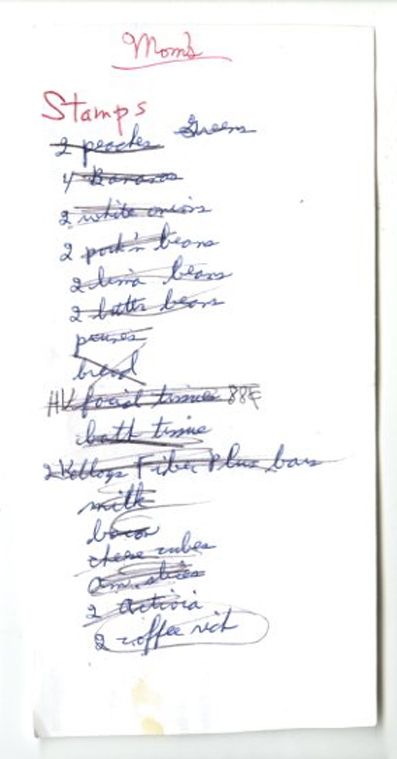 Mom's
Stamps
2 peaches Greens
4 Bananas
2 white onions
2 pork'n beans
2 lima beans
2 butter beans
prunes
bread
HV facial tissues 88¢
bath tissue
2 Kellogs Fiber Plus bars
milk
bacon
cheese cubes
Am. slices
2 Activia
2 coffee rich